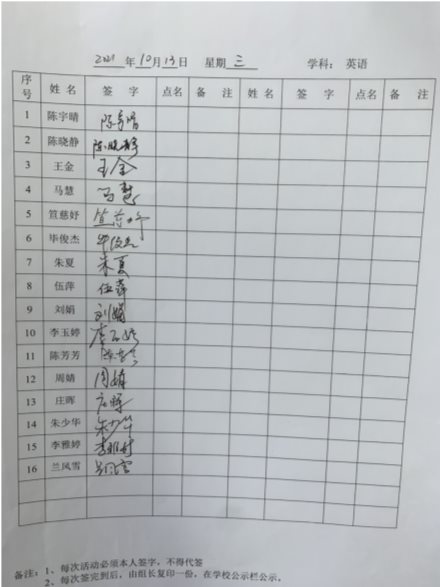 2021 年 10 月 13 日 星期 三 学科： 英语
序号 姓 名 签 字 点名 备 注 姓 名 签 字 点名 备 注
1 陈宇晴 陈宇晴
2 陈晓静 陈晓静
3 王金 王金
4 马慧 马慧
5 笪慈妤 笪慈妤
6 毕俊杰 毕俊杰
7 朱夏 朱夏
8 伍萍 伍萍
9 刘娟 刘娟
10 李玉婷 李玉婷
11 陈芳芳 陈芳芳
12 周婧 周婧
13 庄晖 庄晖
14 朱少华 朱少华
15 李雅婷 李雅婷
16 兰风雪
备注：1、每次活动必须本人签字，不得代签
2、每次签完到后，由组长复印一份，在学校公示栏公示。